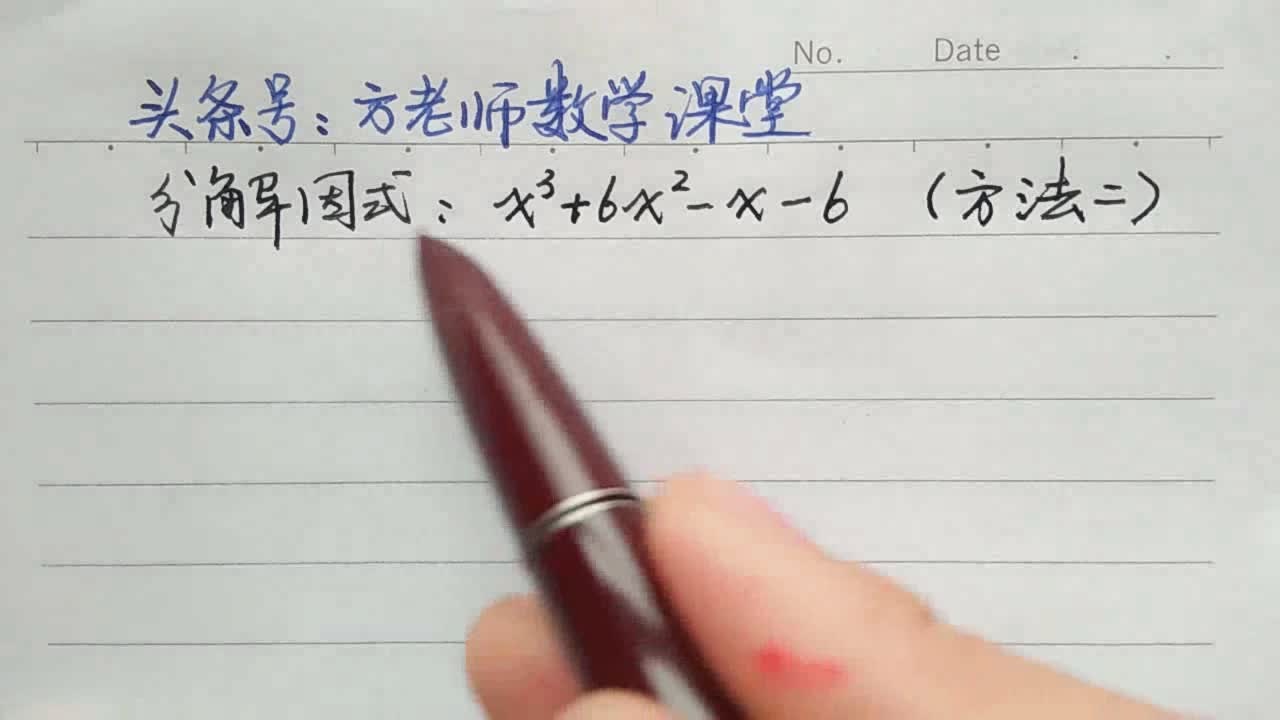 No. Date . .
头条号：方老师数学课堂
分解因式：x³+6x²-x-6 （方法二）